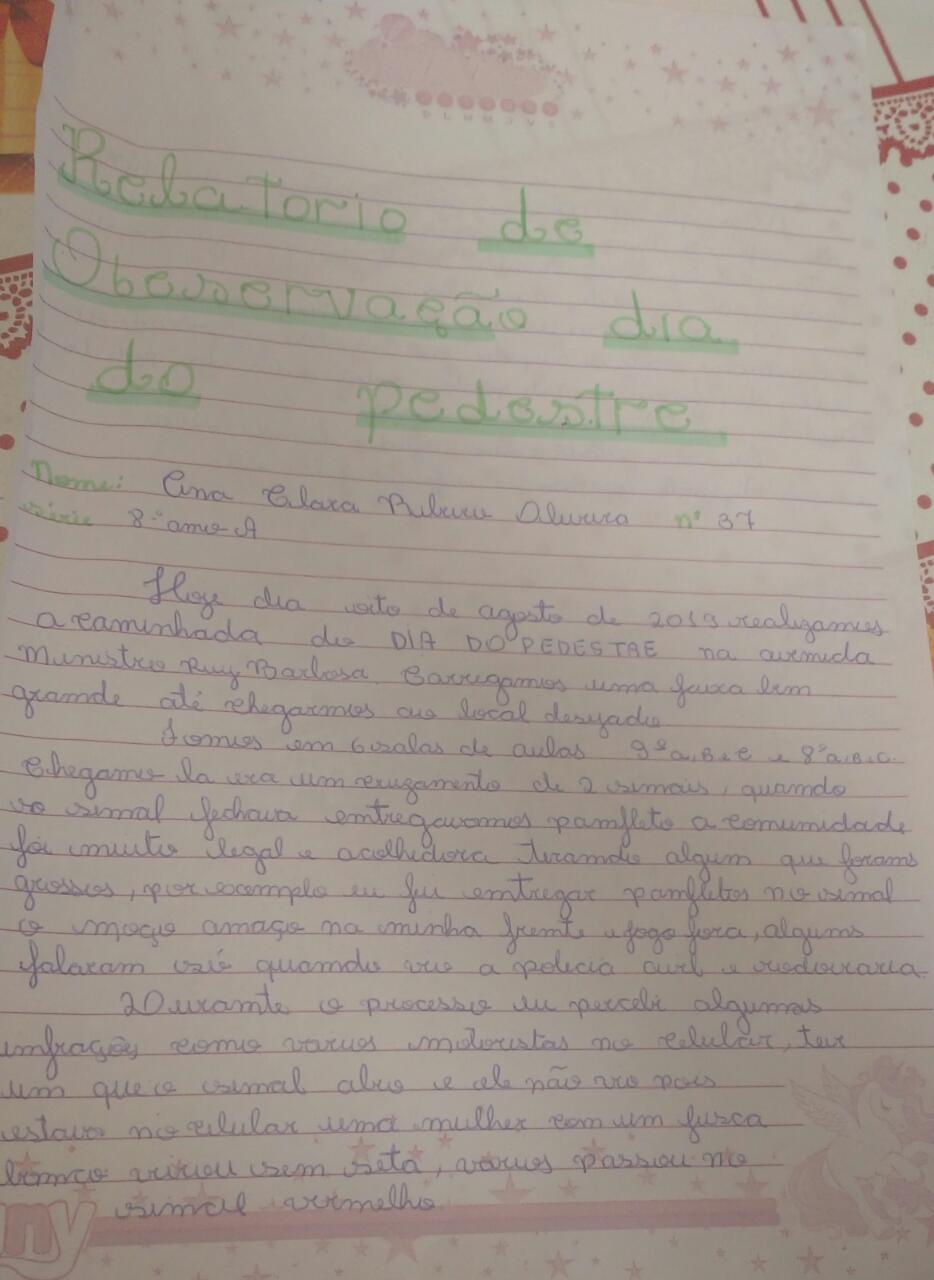 D L M M J V S
Relatorio de
Observação dia
do pedestre
Nome: Ana Clara Ribeiro Oliveira nº 37
série 8º ano A
Hoje dia oito de agosto de 2019 realizamos
a caminhada do DIA DO PEDESTRE na avenida
Ministro Ruy Barbosa. Carregamos uma faixa bem
grande até chegarmos ao local desejado
Fomos em 6 salas de aulas 9º a, B e C e 8º a, B, C.
Chegamo la era um cruzamento de 2 sinais, quando
o sinal fechava entregavamos panfleto a comunidade
foi muito legal e acolhedora tirando algum que forams
grossos, por exemplo eu fui entregar panfletos no sinal
o moço amaço na minha frente e fogo fora, alguns
falaram só quando viu a policia civil e rodoviaria.
Durante o processo eu percebi algumas
infrações como varios motoristas no celular, teve
um que o sinal abriu e ele não viu pois
estava no celular uma mulher com um fusca
branco virou sem seta, varios passou no
sinal vermelho.
ny